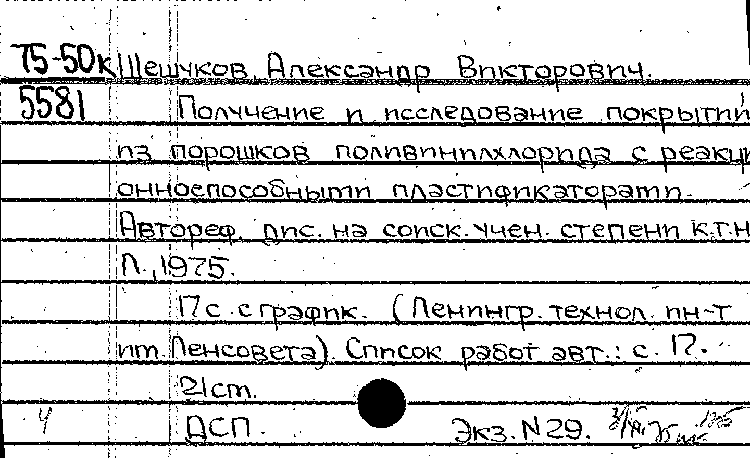 75-50к Шешуков, Александр Викторович.
5581 Получение и исследование покрытий
из порошков поливинилхлорида с реакци
онноспособными пластификаторами.
Автореф. дис. на соиск. учен. степени к.т.н
Л., 1975.
17с. с график. (Ленингр. технол. ин-т
им. Ленсовета). Список работ авт.: с. 17.
21см.
ч ДСП. Экз. N29.